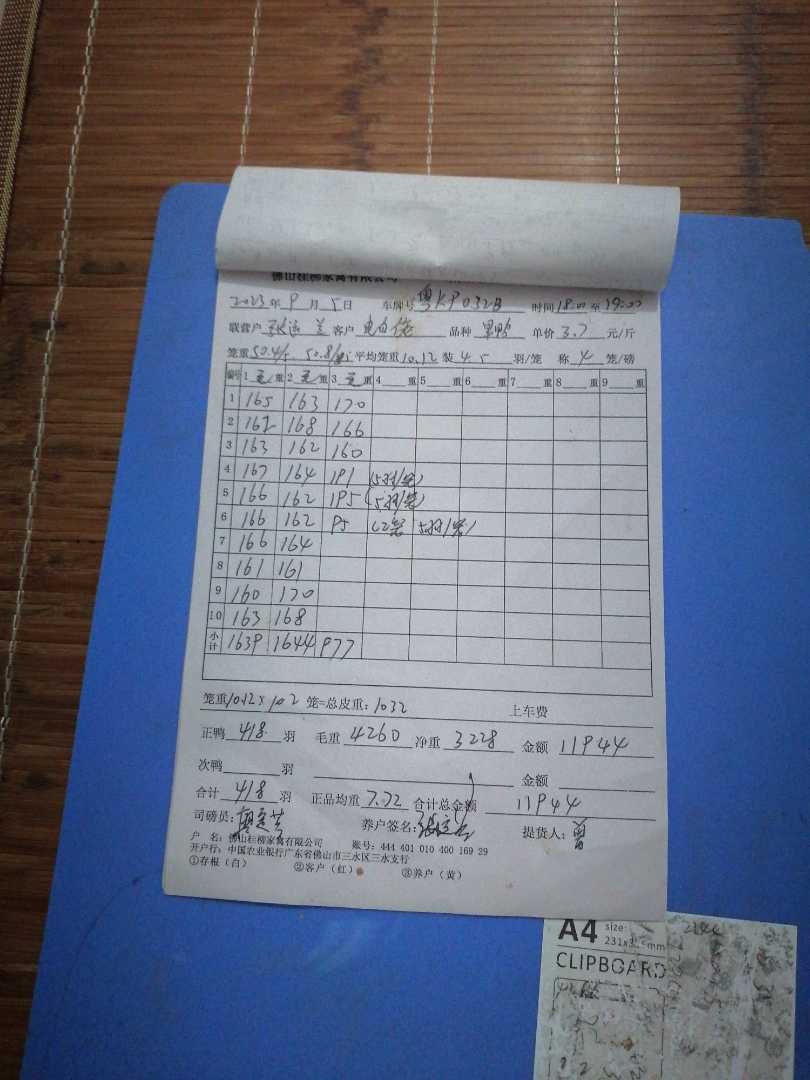 佛山桂柳家禽有限公司
2023年9月5日 车牌号粤KP032B 时间18:00至19:00
联营户 客户 品种 单价3.7元/斤
笼重50.4/5 50.8/5 平均笼重10.12装4.5羽/笼 称4笼/磅
编号 1毛重 2毛重 3毛重 4重 5重 6重 7重 8重 9重
1 165 163 170
2 162 168 166
3 163 162 160
4 167 164 191 (5羽/笼)
5 166 162 195 (5羽/笼)
6 166 162 95 (2笼 5羽/笼)
7 166 164
8 161 161
9 160 170
10 163 168
小计 1639 1644 977
笼重10.12×102笼=总皮重:1032 上车费
正鸭418羽 毛重4260净重3228 金额11944
次鸭羽 金额
合计418羽 正品均重7.72合计总金额11944
司磅员: 养户签名: 提货人:曾
户 名:佛山桂柳家禽有限公司 账号:444 401 010 400 169 29
开户行:中国农业银行广东省佛山市三水区三水支行
①存根(白) ②客户(红) ③养户(黄)
A4 size:
CLIPBOARD